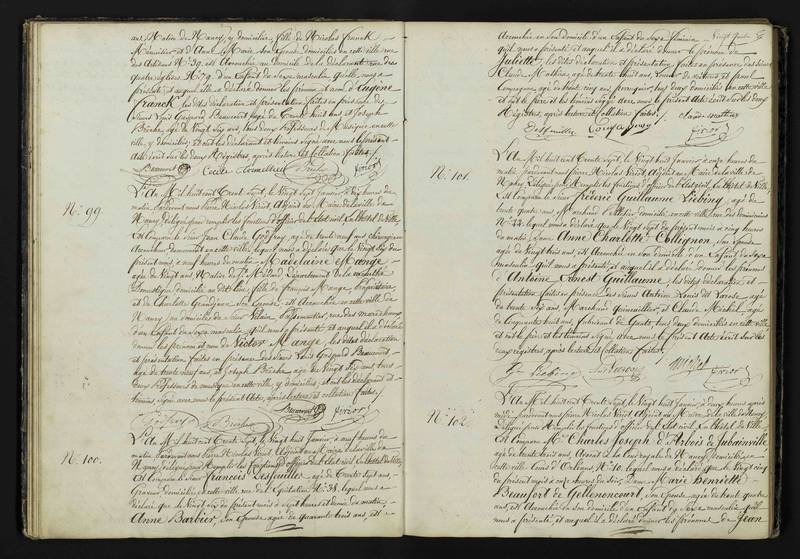 ans, Native de Nancy, y domiciliée, fille de Nicolas Franck
Menuisier et d'Anne Marie son Epouse domiciliés en cette ville rue
des Artisans N.º 39, est Accouchée au domicile de la déclarante rue des
quatre églises N.º 9, d'un Enfant du Sexe masculin qu'elle nous a
présenté, et auquel elle a déclaré donner les prénoms et nom d'Eugène
Franck, les dites déclaration et présentation faites en présence des
Sieurs Louis Gaspard Beaucourt âgé de Trente huit ans et Joseph
Broche âgé de Vingt Six ans, tous deux Professeurs de Musique en cette
ville, y domiciliés, et ont les déclarant et témoins Signé avec nous le présent
Acte écrit sur les deux Registres, après lecture et collation faites.
N.º 99.
L'An Mil huit cent Trente Sept, le Vingt Sept Janvier, à dix heures du
matin, Pardevant nous Pierre Nicolas Noiriel, Adjoint au Maire de la ville de
Nancy, Délégué pour remplir les fonctions d'officier de l'état civil, à l'hôtel de Ville
Est Comparu le Sieur Jean Claude Godfroy, âgé de trente neuf ans, chirurgien
Accoucheur demeurant en cette ville, lequel nous a déclaré que le Vingt Six du
présent mois à neuf heures du matin, Madelaine Mange
âgée de Vingt ans, Native de
Domestique, domiciliée au dit lieu, fille de François Mange,
et de Charlotte Grandjean son Epouse, est Accouchée en cette ville de
Nancy, au domicile du Sieur
d'un Enfant du Sexe masculin qu'il nous a présenté, et auquel il a déclaré
donner les prénom et nom de Victor Mange, les dites déclaration
et présentation faites en présence des Sieurs Louis Gaspard Beaucourt
âgé de trente neuf ans, et Joseph Broche, âgé de Vingt Six ans, tous
deux Professeurs de musique en cette ville, y domiciliés, et ont les déclarant et
témoins Signé avec nous le présent Acte, après lecture et collation faites.
N.º 100.
L'An Mil huit cent Trente Sept, le Vingt huit Janvier, à neuf heures du
matin, Pardevant nous Pierre Nicolas Noiriel Adjoint au Maire de la Ville de
Nancy, délégué pour remplir les fonctions d'officier de l'état civil à l'hôtel de Ville
Est Comparu le Sieur François Desfeuilles âgé de Trente Sept ans,
Graveur domicilié en cette ville rue de l'Equitation N.º 38, lequel nous a
déclaré que le Vingt Six du présent mois à Sept heures et demie du matin,
Anne Barbier, son Epouse âgée de quarante trois ans, est
Accouchée en son domicile d'un Enfant du Sexe féminin
qu'il nous a présenté, et auquel il a déclaré donner le prénom de
Juliette, les dites déclaration et présentation faites en présence des Sieurs
Claude Mathieu, âgé de trente huit ans, Loueur de voitures et
Compagny, âgé de trente cinq ans, perruquier, tous deux domiciliés en cette ville
et ont le père et les témoins Signé avec nous le présent Acte écrit sur les deux
Registres, après lecture et collation faites.
N.º 101.
L'An Mil huit cent Trente Sept, le Vingt huit Janvier à onze heures du
matin, pardevant nous Pierre Nicolas Noiriel Adjoint au Maire de la Ville de
Nancy, Délégué pour Remplir les fonctions d'officier de l'état civil, à l'hôtel de Ville
Est Comparu le Sieur Fréderic Guillaume Liebing, âgé de
trente quatre ans, Marchand domicilié en cette ville rue des Dominicains
N.º 22, lequel nous a déclaré que le Vingt Sept du présent mois à cinq heures
du matin, Dame Anne Charlotte Collignon, son Epouse
âgée de Vingt trois ans, est Accouchée en son domicile d'un Enfant du Sexe
masculin qu'il nous a présenté, et auquel il a déclaré donner les prénoms
d'Antoine Ernest Guillaume, les dites déclaration et
présentation faites en présence des Sieurs Antoine Louis
de trente Six ans, Marchand quincaillier, et Claude Michel, âgé
de Cinquante huit ans, fabricant de Gants, tous deux domiciliés en cette ville
et ont le père et les témoins Signé avec nous le présent Acte écrit sur les
deux registres, après lecture et collation faites.
N.º 102.
L'An Mil huit cent Trente Sept, le Vingt huit Janvier, à deux heures après
midi, pardevant nous Pierre Nicolas Noiriel Adjoint au Maire de la ville de Nancy
Délégué pour Remplir les fonctions d'officier de l'état civil, à l'hôtel de Ville,
Est Comparu M.r Charles Joseph d'Arbois de Jubainville,
âgé de trente trois ans, Avocat à la Cour royale de Nancy, Domicilié en
cette ville, Cours d'Orléans N.º 10, lequel nous a déclaré que le Vingt cinq
du présent mois à onze heures du soir, Dame Marie Henriette
Beaufort de Gellenoncourt, son Epouse âgée de trente quatre
ans, est Accouchée en son domicile d'un Enfant du Sexe masculin qu'il
nous a présenté, et auquel il a déclaré donner les prénoms de Jean